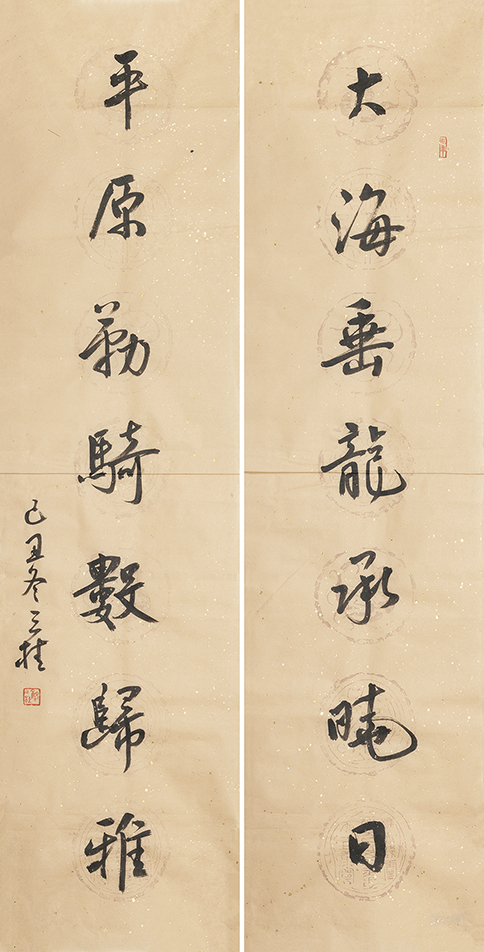 大海垂龍承曉日
平原勒騎數歸雅
己丑冬三桂